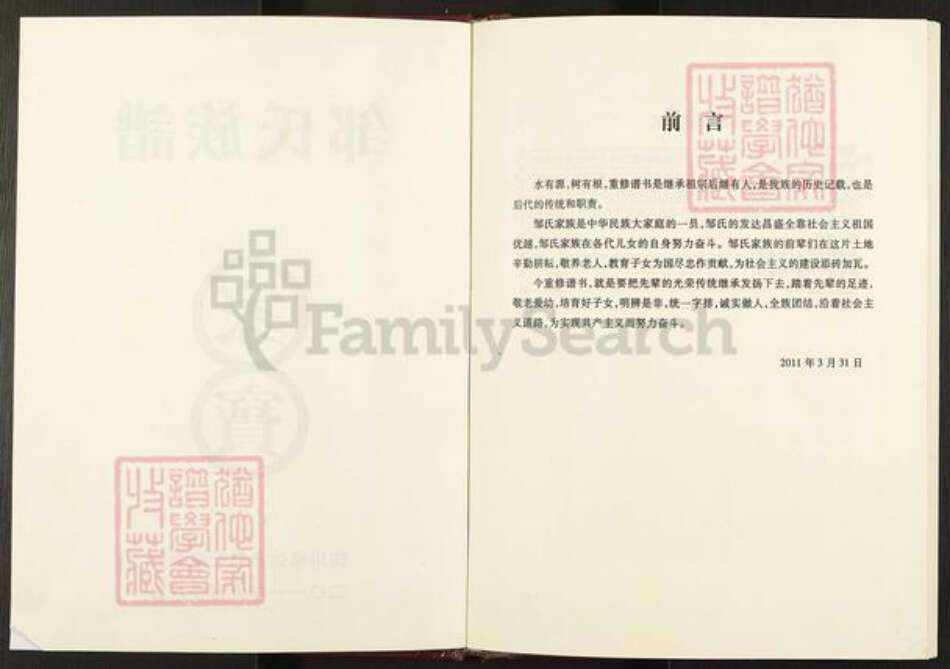 邹氏族谱
猶他家
譜學會
收藏
前言
猶他家
譜學會
收藏
水有源,树有根,重修谱书是继承祖宗后继有人,是我族的历史记载,也是
后代的传统和职责。
邹氏家族是中华民族大家庭的一员,邹氏的发达昌盛全靠社会主义祖国
优越,邹氏家族在各代儿女的自身努力奋斗。邹氏家族的前辈们在这片土地
辛勤耕耘,敬养老人,教育子女为国尽忠作贡献,为社会主义的建设添砖加瓦。
今重修谱书,就是要把先辈的光荣传统继承发扬下去,踏着先辈的足迹,
敬老爱幼,培育好子女,明辨是非,统一字排,诚实做人,全族团结,沿着社会主
义道路,为实现共产主义而努力奋斗。
2011年3月31日
FamilySearch